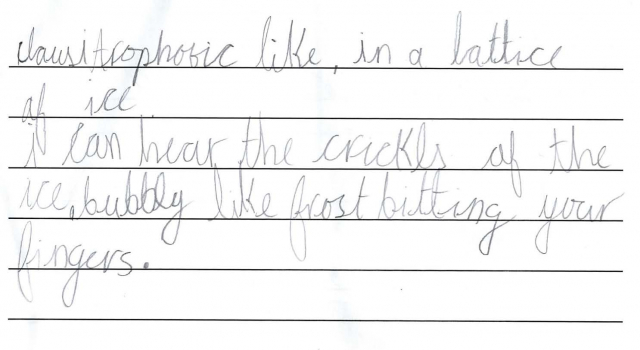 clausitrophobic like, in a lattice
of ice
i can hear the crickls of the
ice, bubbly like frost bitting your
fingers.